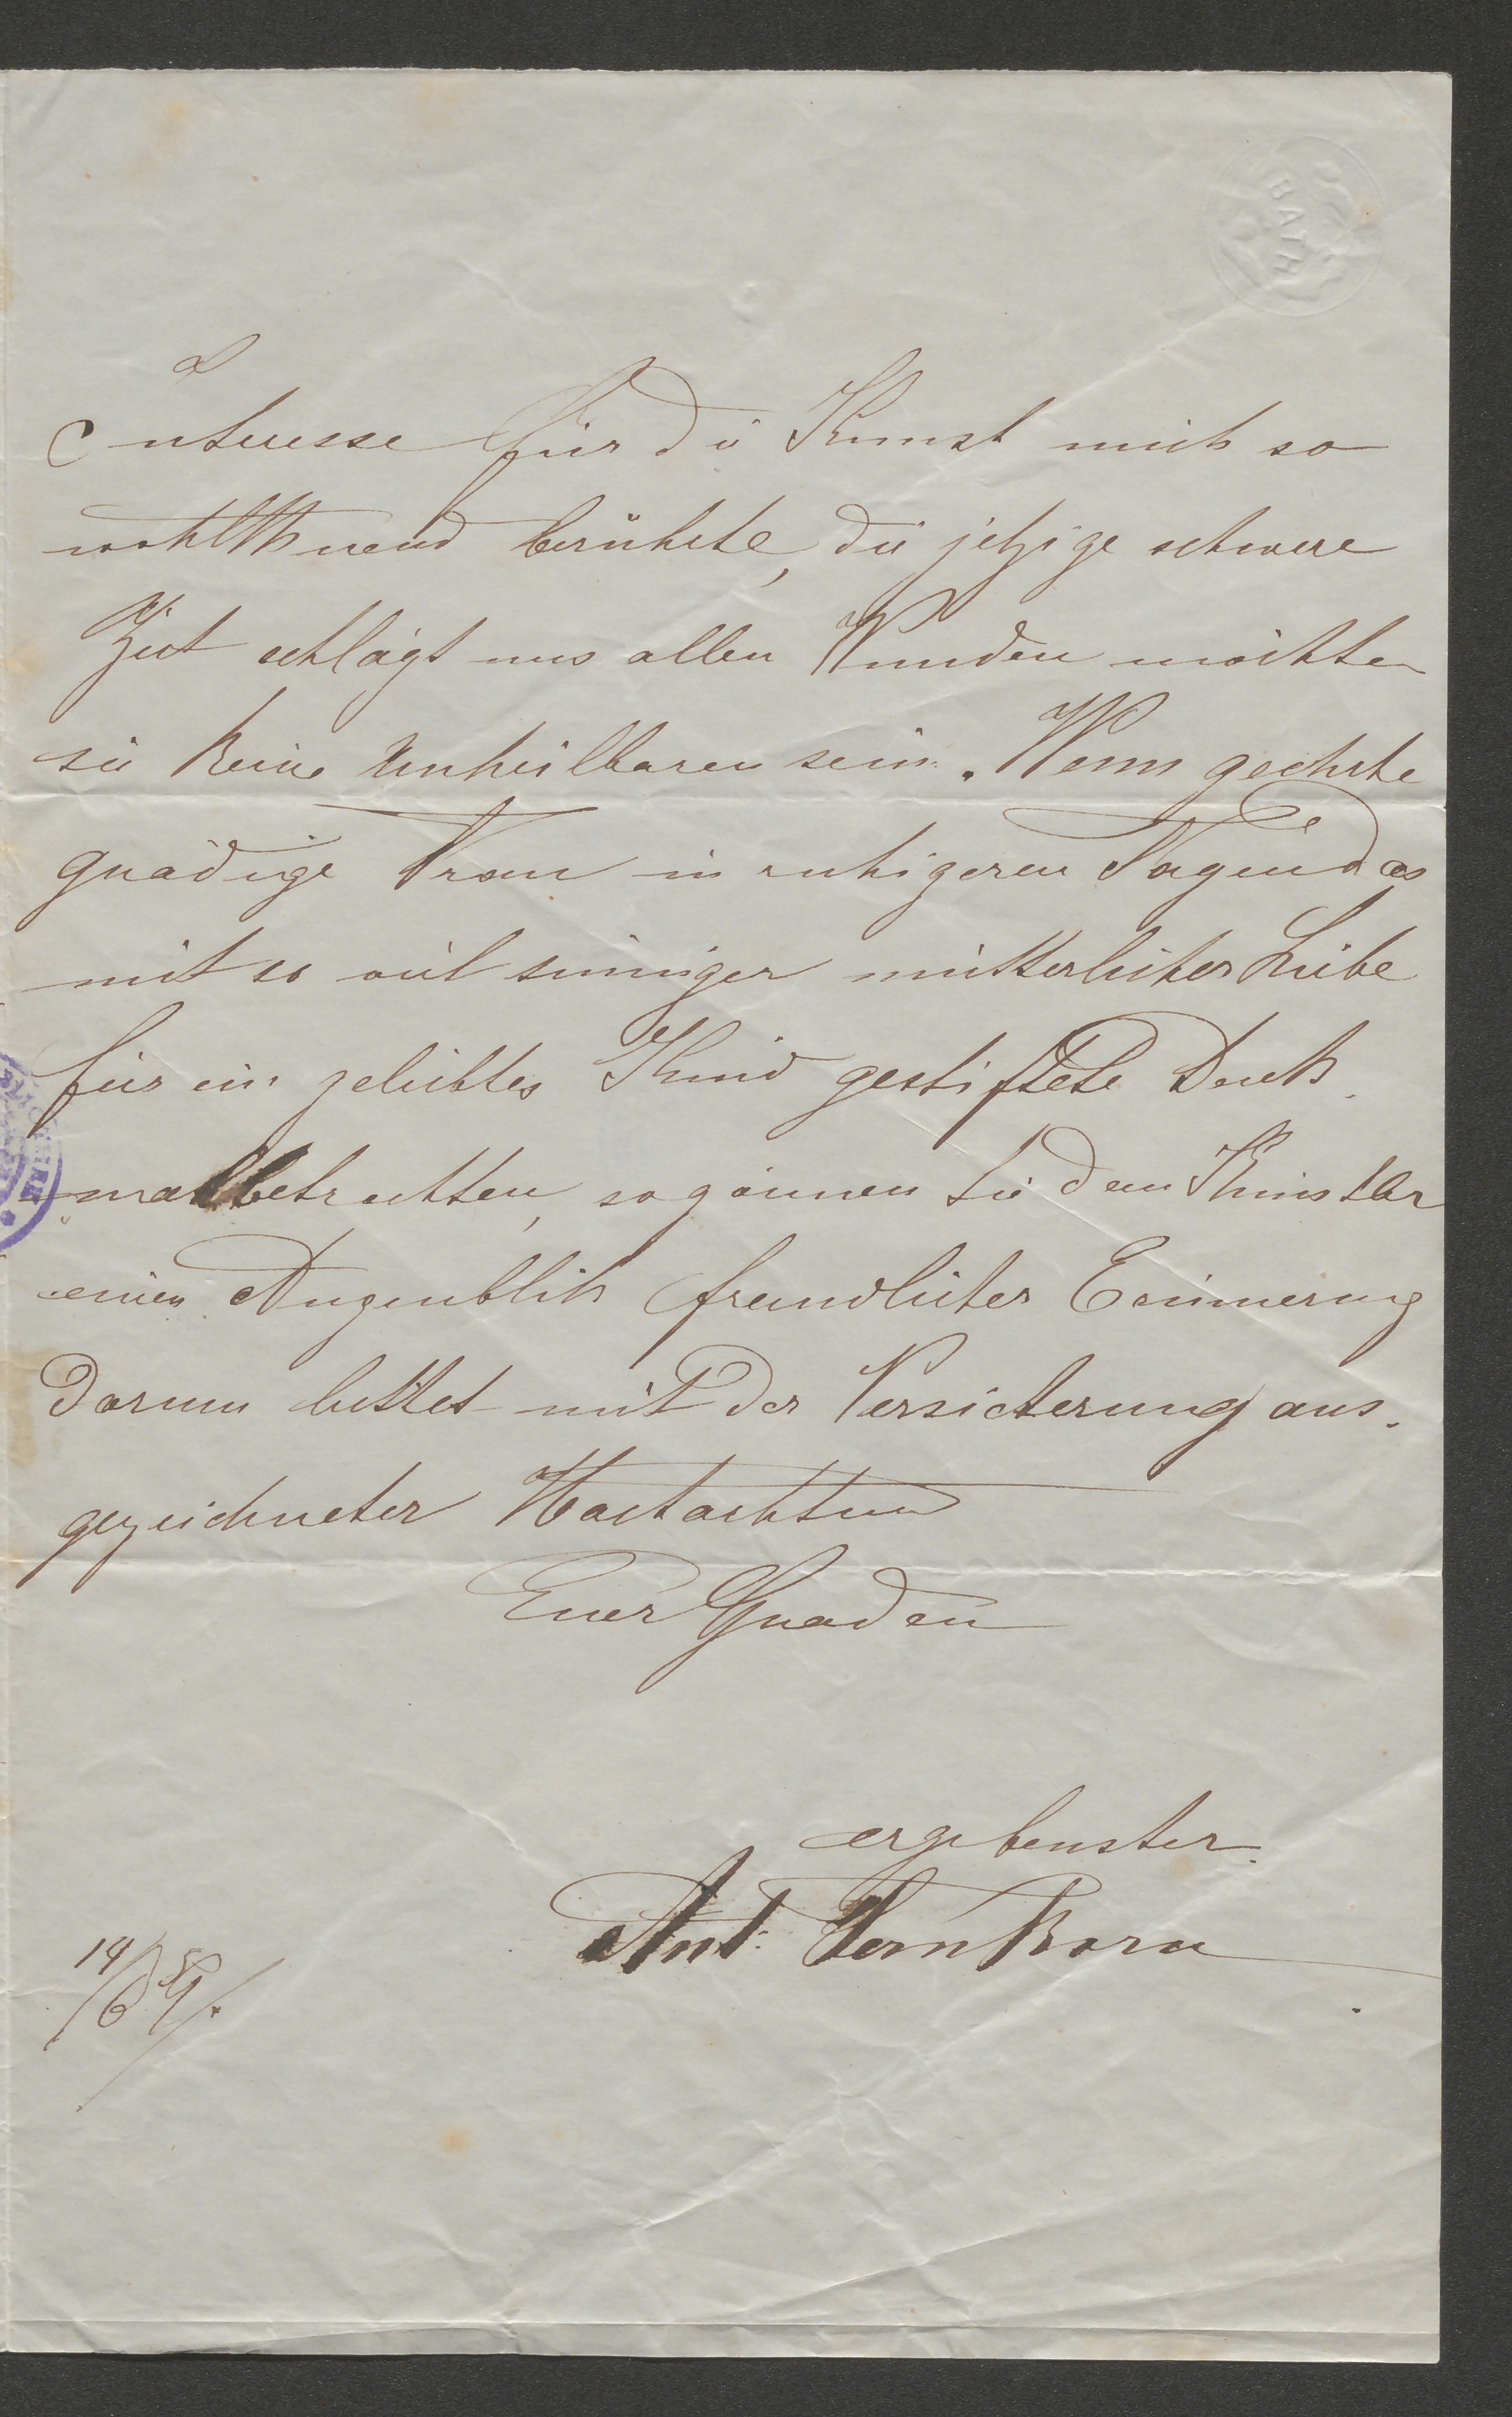 BATH
Interesse für die Kunst mich so
wohlthuend berührte, die jetzige schwere
Zeit schlägt uns allen Wunden möchten
sie keine Unheilbaren sein. Wenn geehrte
gnädige Frau in ruhigeren Tagen das
mit so viel sinniger mütterlicher Liebe
für ein geliebtes Kind gestiftete Denk-
mal betrachten, so gönnen Sie dem Künstler
einen Augenblick freundlicher Erinnerung
darum bittet mit der Versicherung aus-
gezeichneter Hochachtung
Euer Gnaden
ergebenster
Ant. Fernkorn
14/6 59.